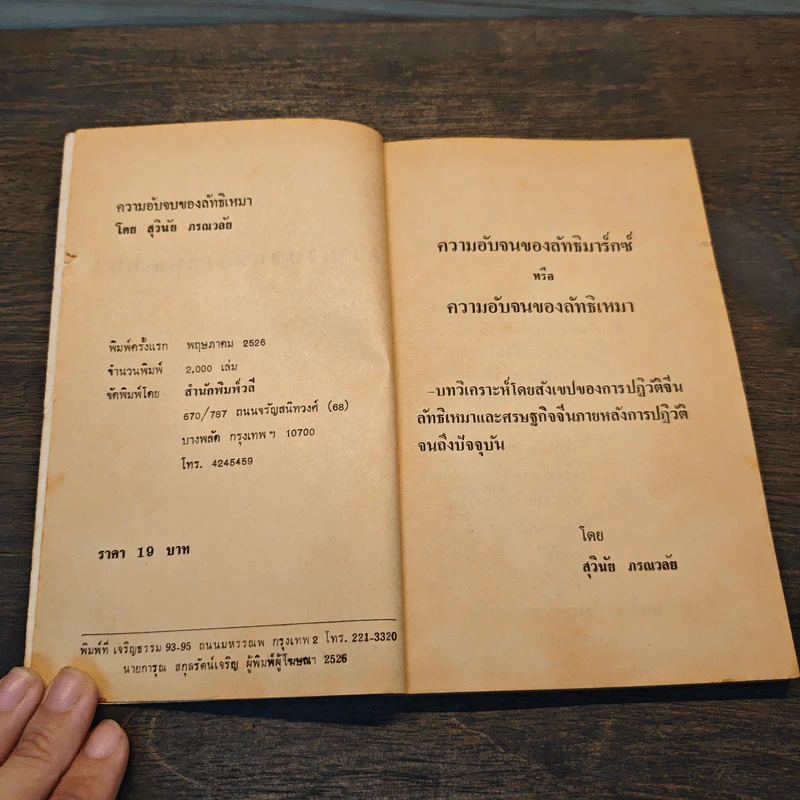 ความอับจนของลัทธิเหมา
โดย สุวินัย ภรณวลัย
พิมพ์ครั้งแรก พฤษภาคม 2526
จำนวนพิมพ์ 2,000 เล่ม
จัดพิมพ์โดย สำนักพิมพ์วลี
670/787 ถนนจรัญสนิทวงศ์ (68)
บางพลัด กรุงเทพฯ 10700
โทร. 4245459
ราคา 19 บาท
พิมพ์ที่ เจริญธรรม 93-95 ถนนมหรรณพ กรุงเทพ 2 โทร. 221-3320
นายการุณ สกุลรัตน์เจริญ ผู้พิมพ์ผู้โฆษณา 2526
ความอับจนของลัทธิมาร์กซ์
หรือ
ความอับจนของลัทธิเหมา
-บทวิเคราะห์โดยสังเขปของการปฏิวัติจีน
ลัทธิเหมาและเศรษฐกิจจีนภายหลังการปฏิวัติ
จนถึงปัจจุบัน
โดย
สุวินัย ภรณวลัย